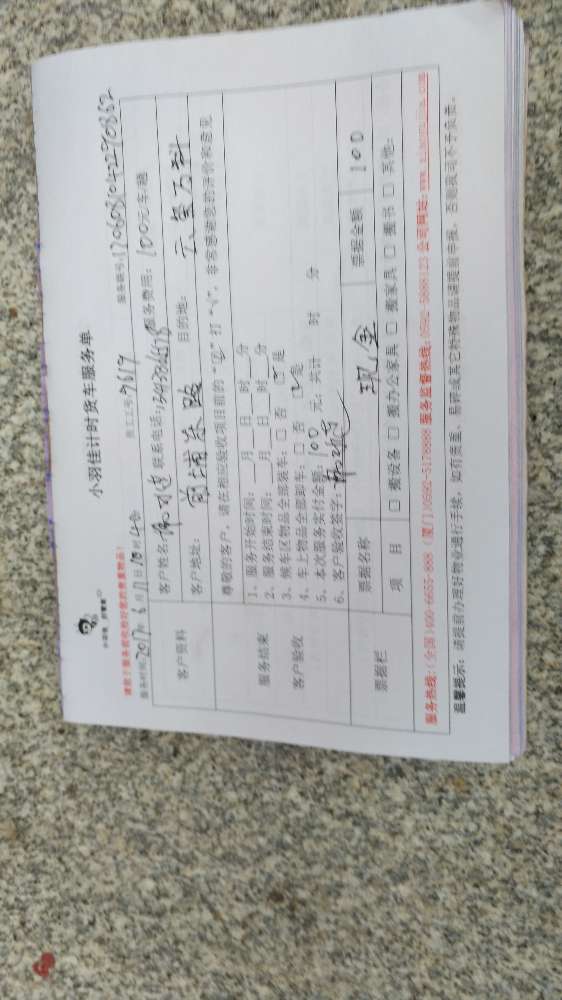 小羽佳计时货车服务单
服务单号:1706081042270862
请您于服务前收拾好您的贵重物品!
服务时间:2017年6月11日10时40分 员工工号:7617
客户资料
客户姓名: 联系电话: 服务费用:100元/车趟
客户地址: 目的地:
服务结束 客户验收
尊敬的客户,请在相应验收项目前的“☑”打“√”,非常感谢您的评价和意见
1、服务开始时间:__月__日__时__分
2、服务结束时间:__月__日__时__分
3、候车区物品全部装车:□否 ☑是
4、车上物品全部卸车:□否 ☑是
5、本次服务实付金额:100元;共计 时 分
6、客户验收签字:
票据栏
票据名称 现金 票据金额 100
项 目 □搬设备 □搬办公家具 □搬家具 □搬书 □其他:
服务热线:(全国)400-6655-888 (厦门)0592-3178888 服务监督热线:0592-5888123 公司网址:
温馨提示:请提前办理好物业通行手续,如有贵重、易碎或其它特殊物品请提前申报,否则我司不予负责。